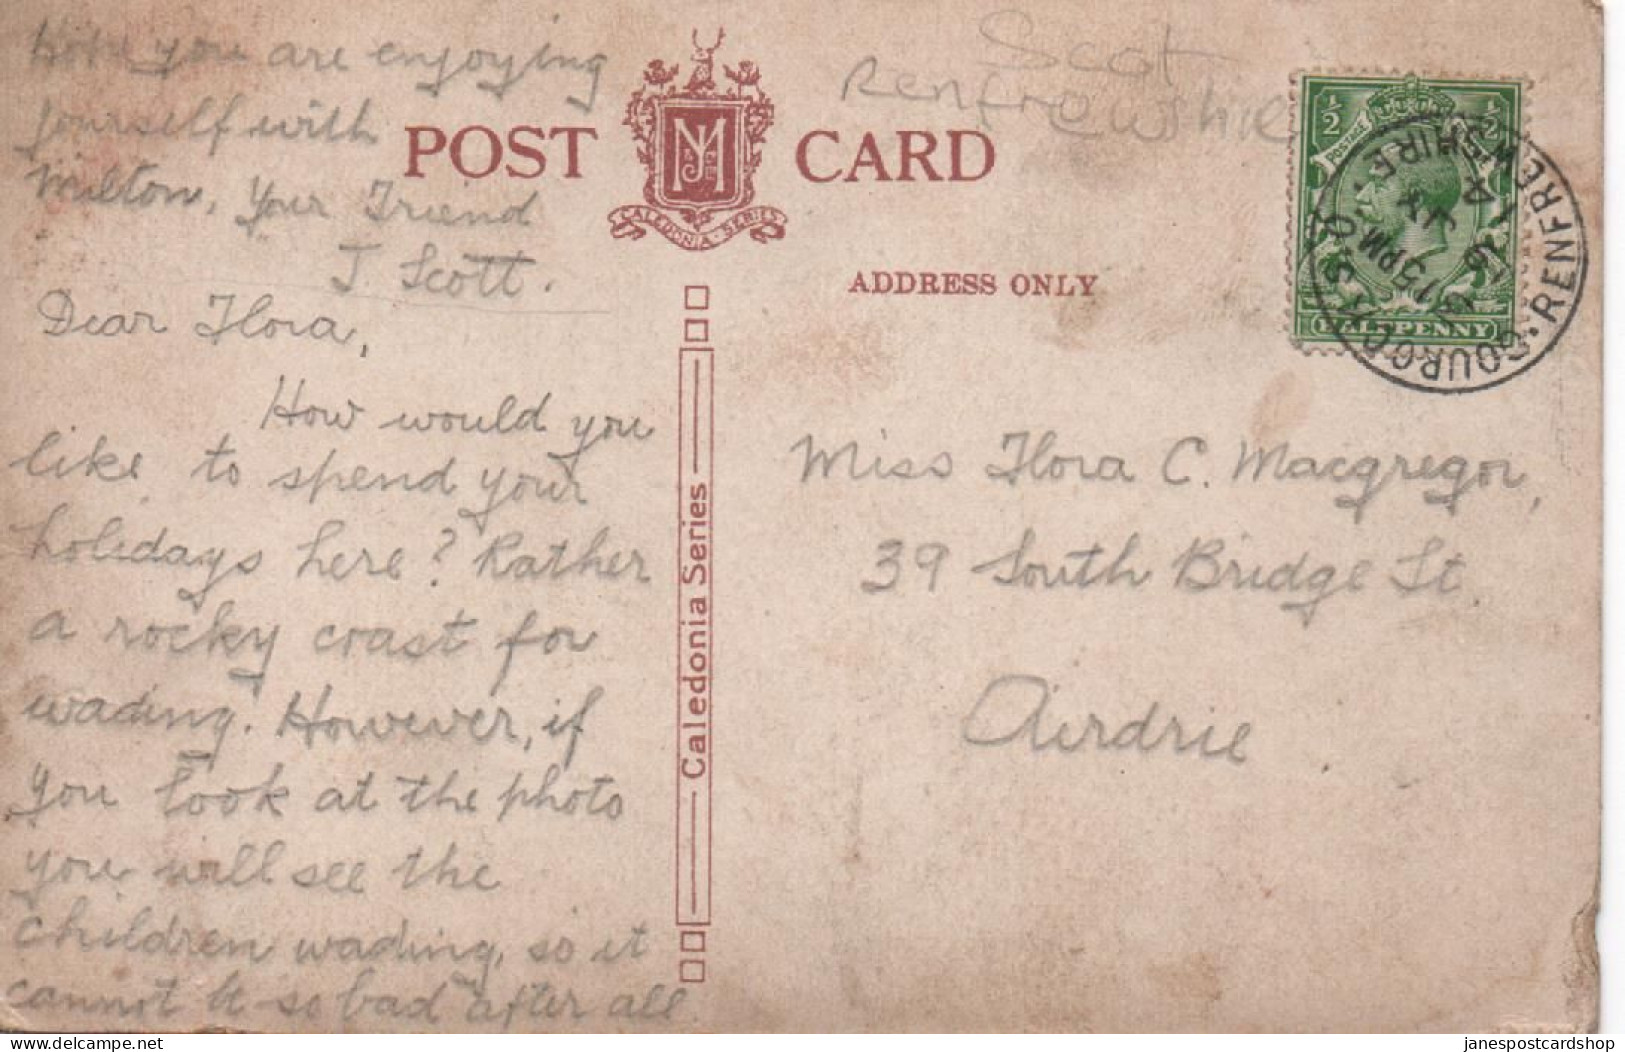 Hope you are enjoying
yourself with
Milton. Your Friend
J Scott.
Dear Flora,
How would you
like to spend your
holidays here? Rather
a rocky coast for
wading. However, if
you look at the photo
you will see the
children wading, so it
cannot be so bad after all
POST CARD
MJ
CALEDONIA · SERIES
ADDRESS ONLY
Caledonia Series
Scot
Renfrewshire
1/2 1/2
POSTAGE
HALFPENNY
GOUROCK S.O.
RENFREWSHIRE
15 PM
JY
19
14
Miss Flora C. Macgregor,
39 South Bridge St
Airdrie
Delcampe.net
janespostcardshop